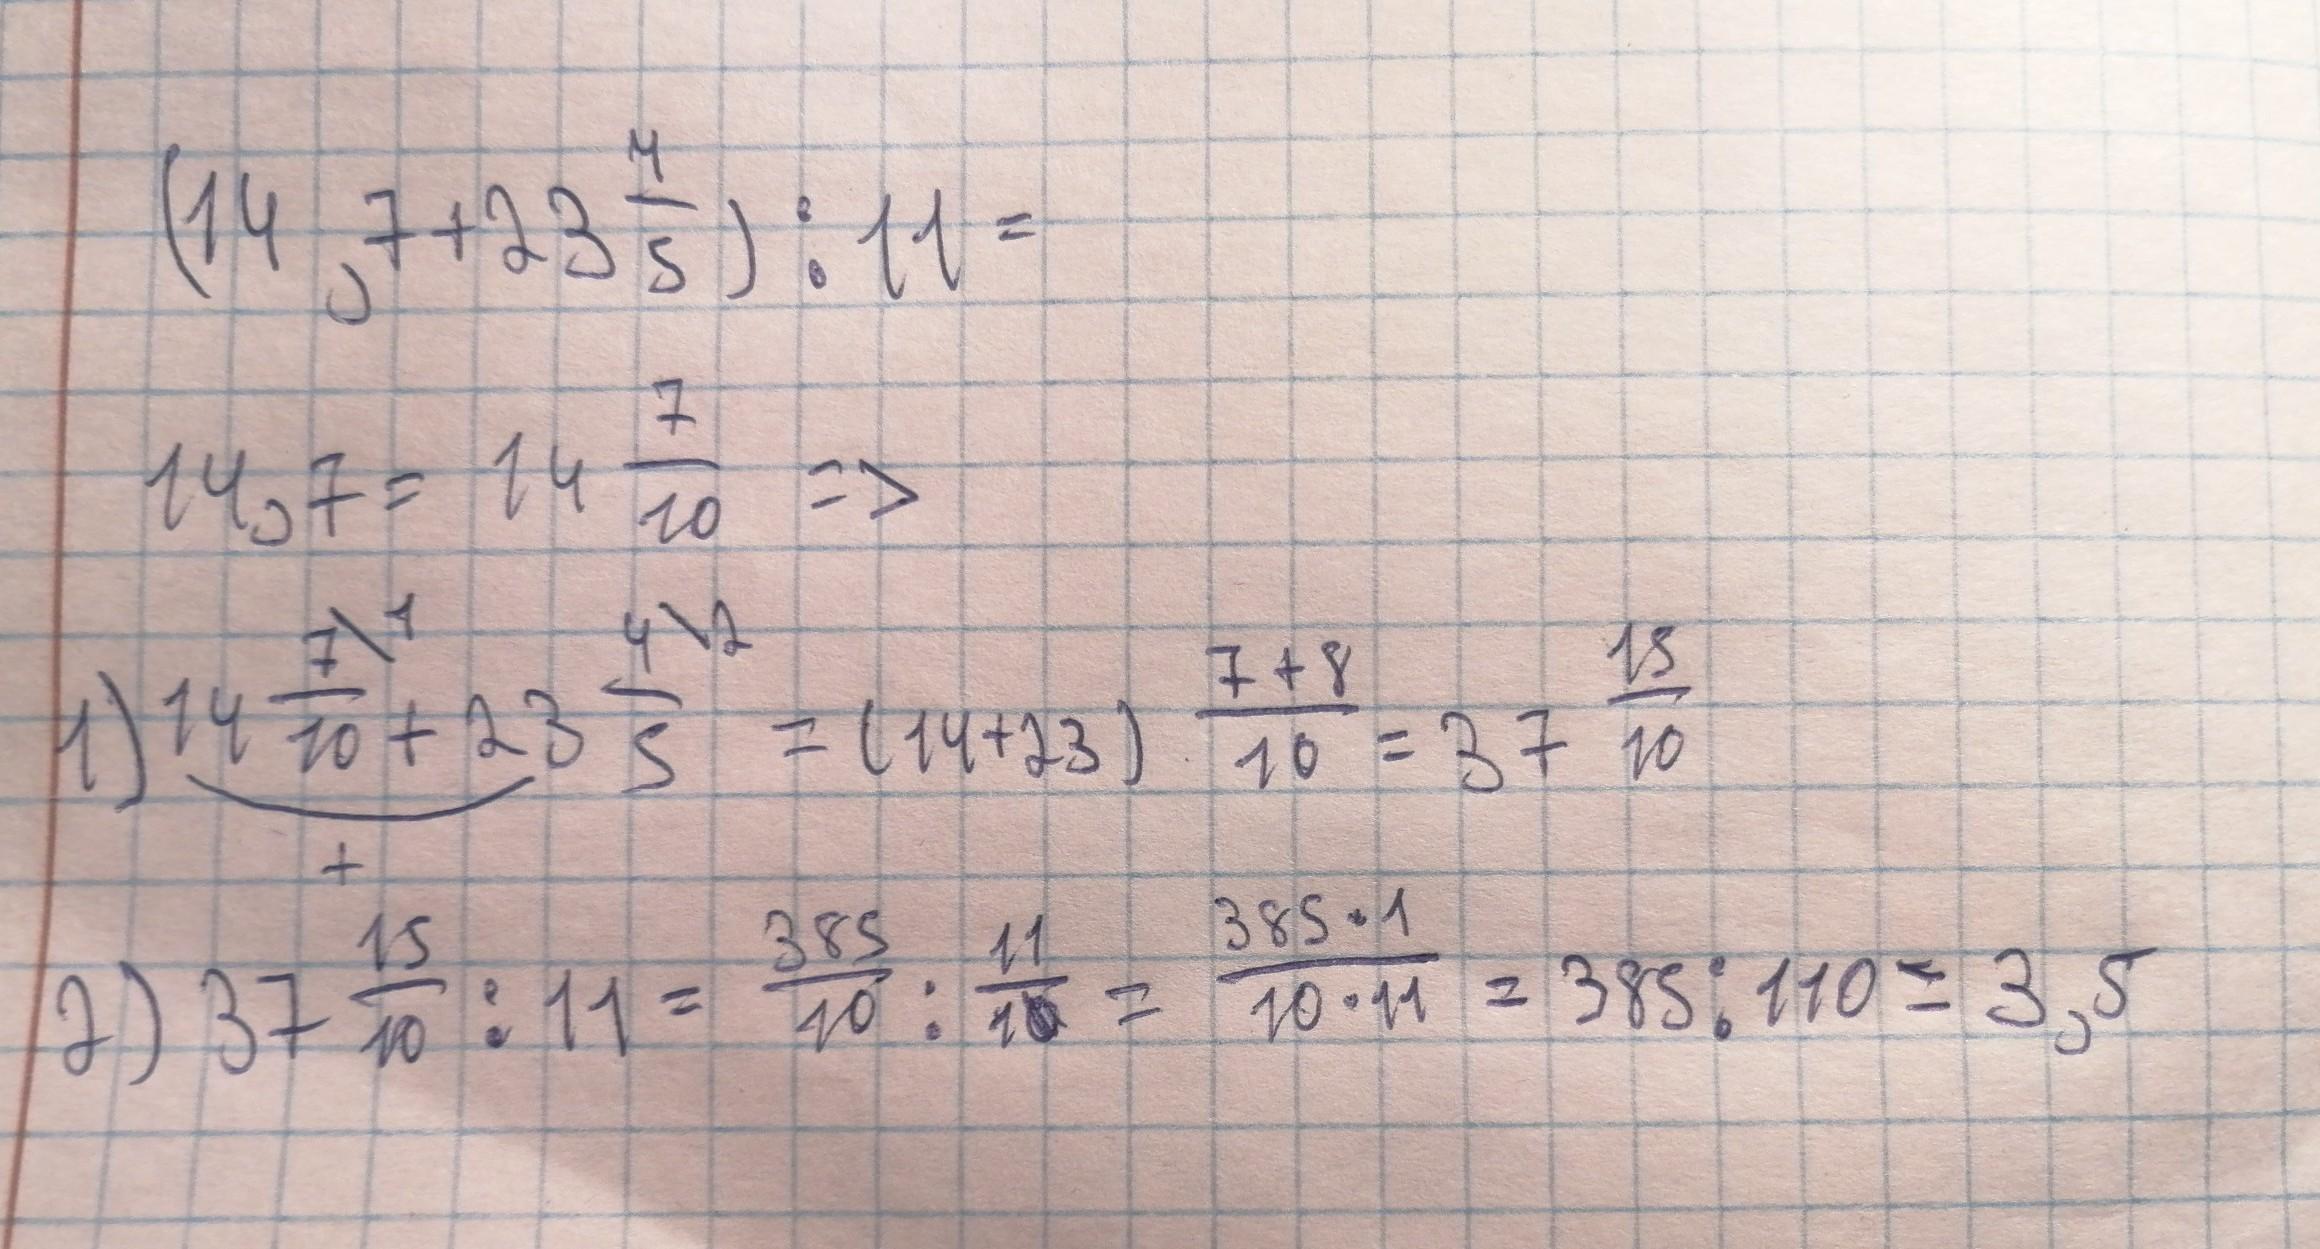 (14,7+23 4/5):11=
14,7= 14 7/10 =>
1) 14 7\1/10 + 23 4\2/5 = (14+23) 7+8/10 = 37 15/10
+
2) 37 15/10 : 11 = 385/10 : 11/1 = 385·1/10·11 = 385:110 = 3,5